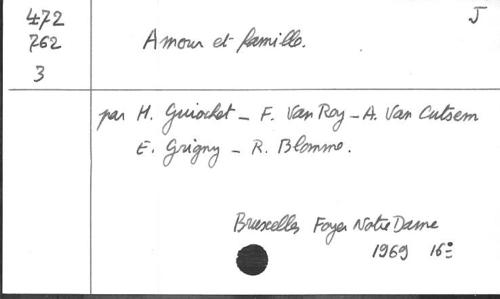 472
762
3
J
Amour et famille.
par H. Guiochet - F. Van Roy - A. Van Cutsem
E. Grigny - R. Blomme.
Bruxelles Foyer Notre Dame
1969 16°